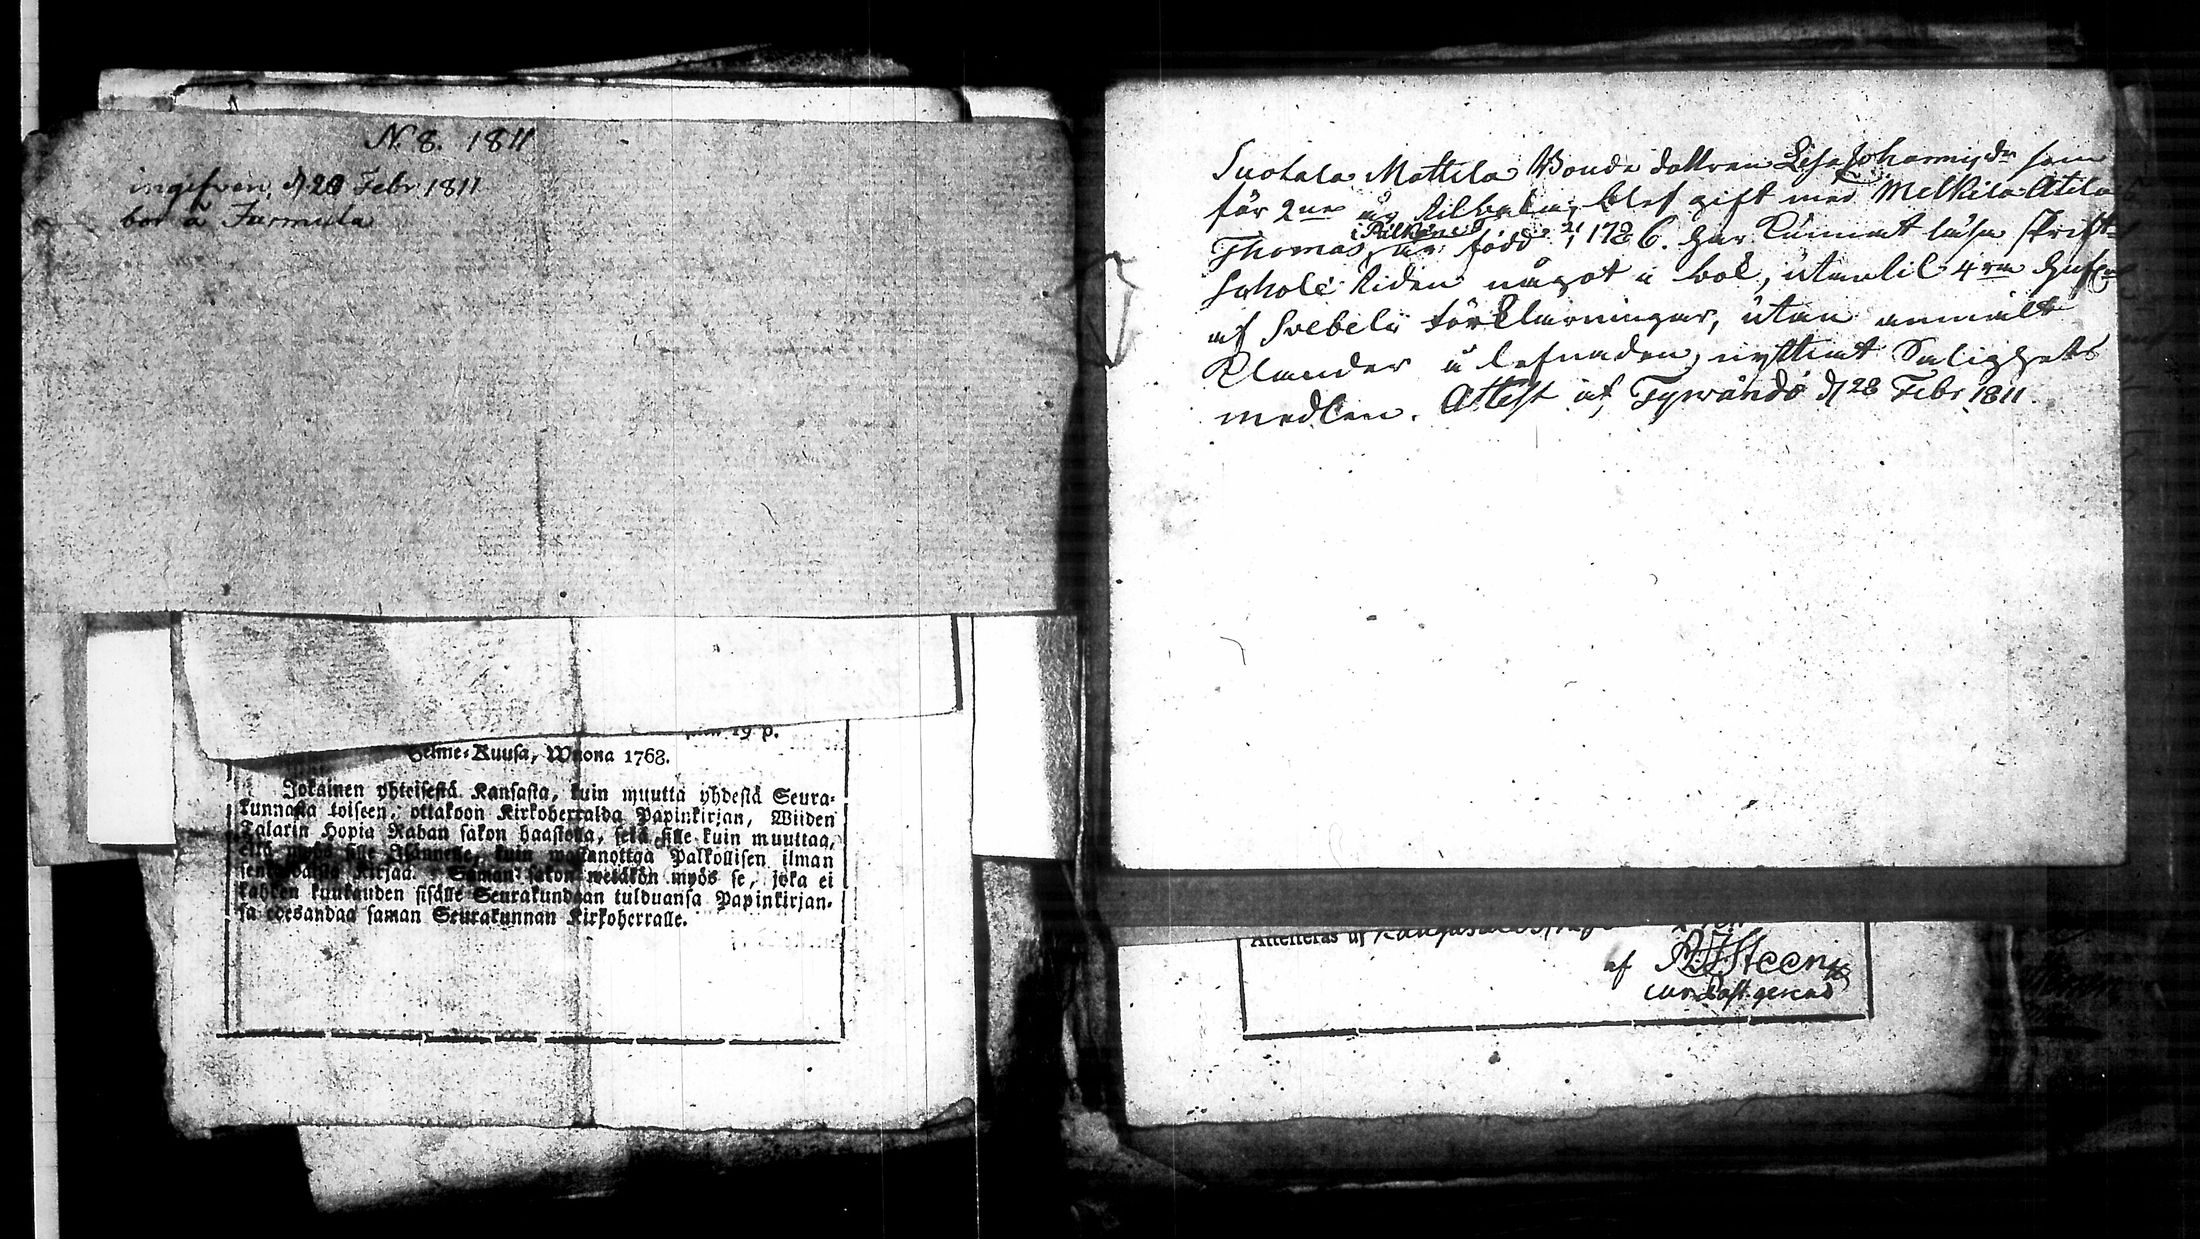 N. 8. 1811
ingifven d 28 Febr. 1811
bor å Jarmula
19 p.
Helme-Kuusa, Wuona 1763.
Jokainen yhteisestä Kansasta, kuin muutta yhdestä Seura-
kunnasta toiseen, ottakoon Kirkoherralda Papinkirjan, Wiiden
Talarin Hopia Rahan sakon haastolla, sekä sille kuin muuttaa,
että myös sille Isännelle, kuin wastanottaa Palkollisen ilman
Kirjaa. Saman sakon wetäkön myös se, joka ei
kahden kuukauden sisälle Seurakundaan tulduansa Papinkirjan-
sa edesandaa saman Seurakunnan Kirkoherralle.
Suotala Mattila Bonde dottren Lisa Johansdr som
för 2ne år tilbaka, blef gift med Melkila Atila
Thomas, är i Pälkäne född 1786. Har kunnat läsa skrift-
Schole tiden något i bok, utantil 4ra
af Svebelii förklarningar, utan anmält
Klander å lefnaden, nyttiat Salighets
medlen. Attest af Tyrwändö d 28 Febr. 1811.
Attesteras af Kangasala
af Steen